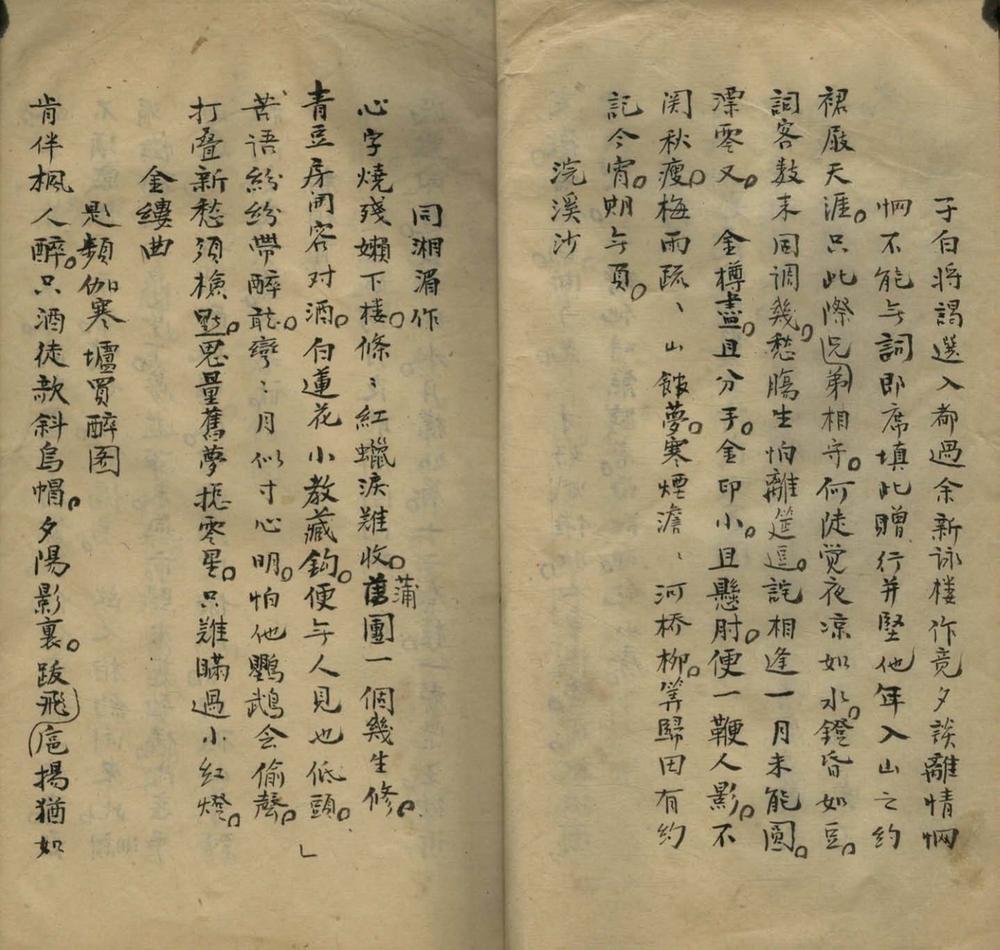 子白將謁選入都過余新詠楼作竟夕談離情惘
惘不能与詞即席填此贈行并堅他年入山之約
裙屐天涯只此際兄弟相守何陡觉夜凉如水鐙昏如豆
詞客数来同調幾愁腸生怕離筵逗詫相逢一月未能圓
漂零又 金樽盡且分手金印小且懸肘便一鞭人影不
関秋瘦梅雨疏丶山館夢寒煙澹丶河桥柳算歸田有約
記今宵盟与頁
浣溪沙
同湘湄作
心字燒殘嬾下楼條丶紅蠟淚難收蒲團一個幾生修
青豆房闲容对酒白蓮花小教藏鈎便与人見也低頭
苦語紛紛帶醉聽彎丶月似寸心明怕他鸚鵡会偷聲
打叠新愁須檢點思量舊夢摠零星只難瞞過小红燈
金縷曲
題頻伽寒壚買醉图
肯伴楓人醉只酒徒款斜烏帽夕陽影裏跋飛扈揚猶如